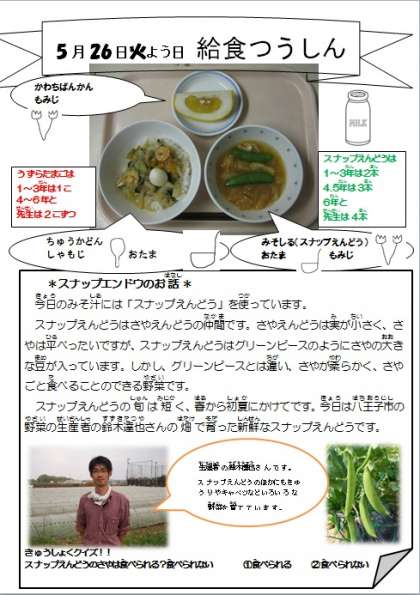 5月26日火よう日 給食つうしん
かわちばんかん
もみじ
MILK
うずらたまごは
1～3年は1こ
4～6年と
先生は2こずつ
スナップえんどうは
1～3年は2本
4.5年は3本
6年と
先生は4本
ちゅうかどん
しゃもじ おたま
みそしる(スナップえんどう)
おたま もみじ
＊スナップエンドウのお話＊
今日のみそ汁には「スナップえんどう」を使っています。
スナップえんどうはさやえんどうの仲間です。さやえんどうは実が小さく、さ
やは平べったいですが、スナップえんどうはグリーンピースのようにさやの大き
な豆が入っています。しかし、グリーンピースとは違い、さやが柔らかく、さや
ごと食べることのできる野菜です。
スナップえんどうの旬は短く、春から初夏にかけてです。今日は八王子市の
野菜の生産者の鈴木達也さんの畑で育った新鮮なスナップえんどうです。
生産者の鈴木達也さんです。
スナップえんどうのほかにもきゅ
うりやキャベツなどいろいろな
野菜を育てています。
きゅうしょくクイズ！！
スナップえんどうのさやは食べられる？食べられない ①食べられる ②食べられない